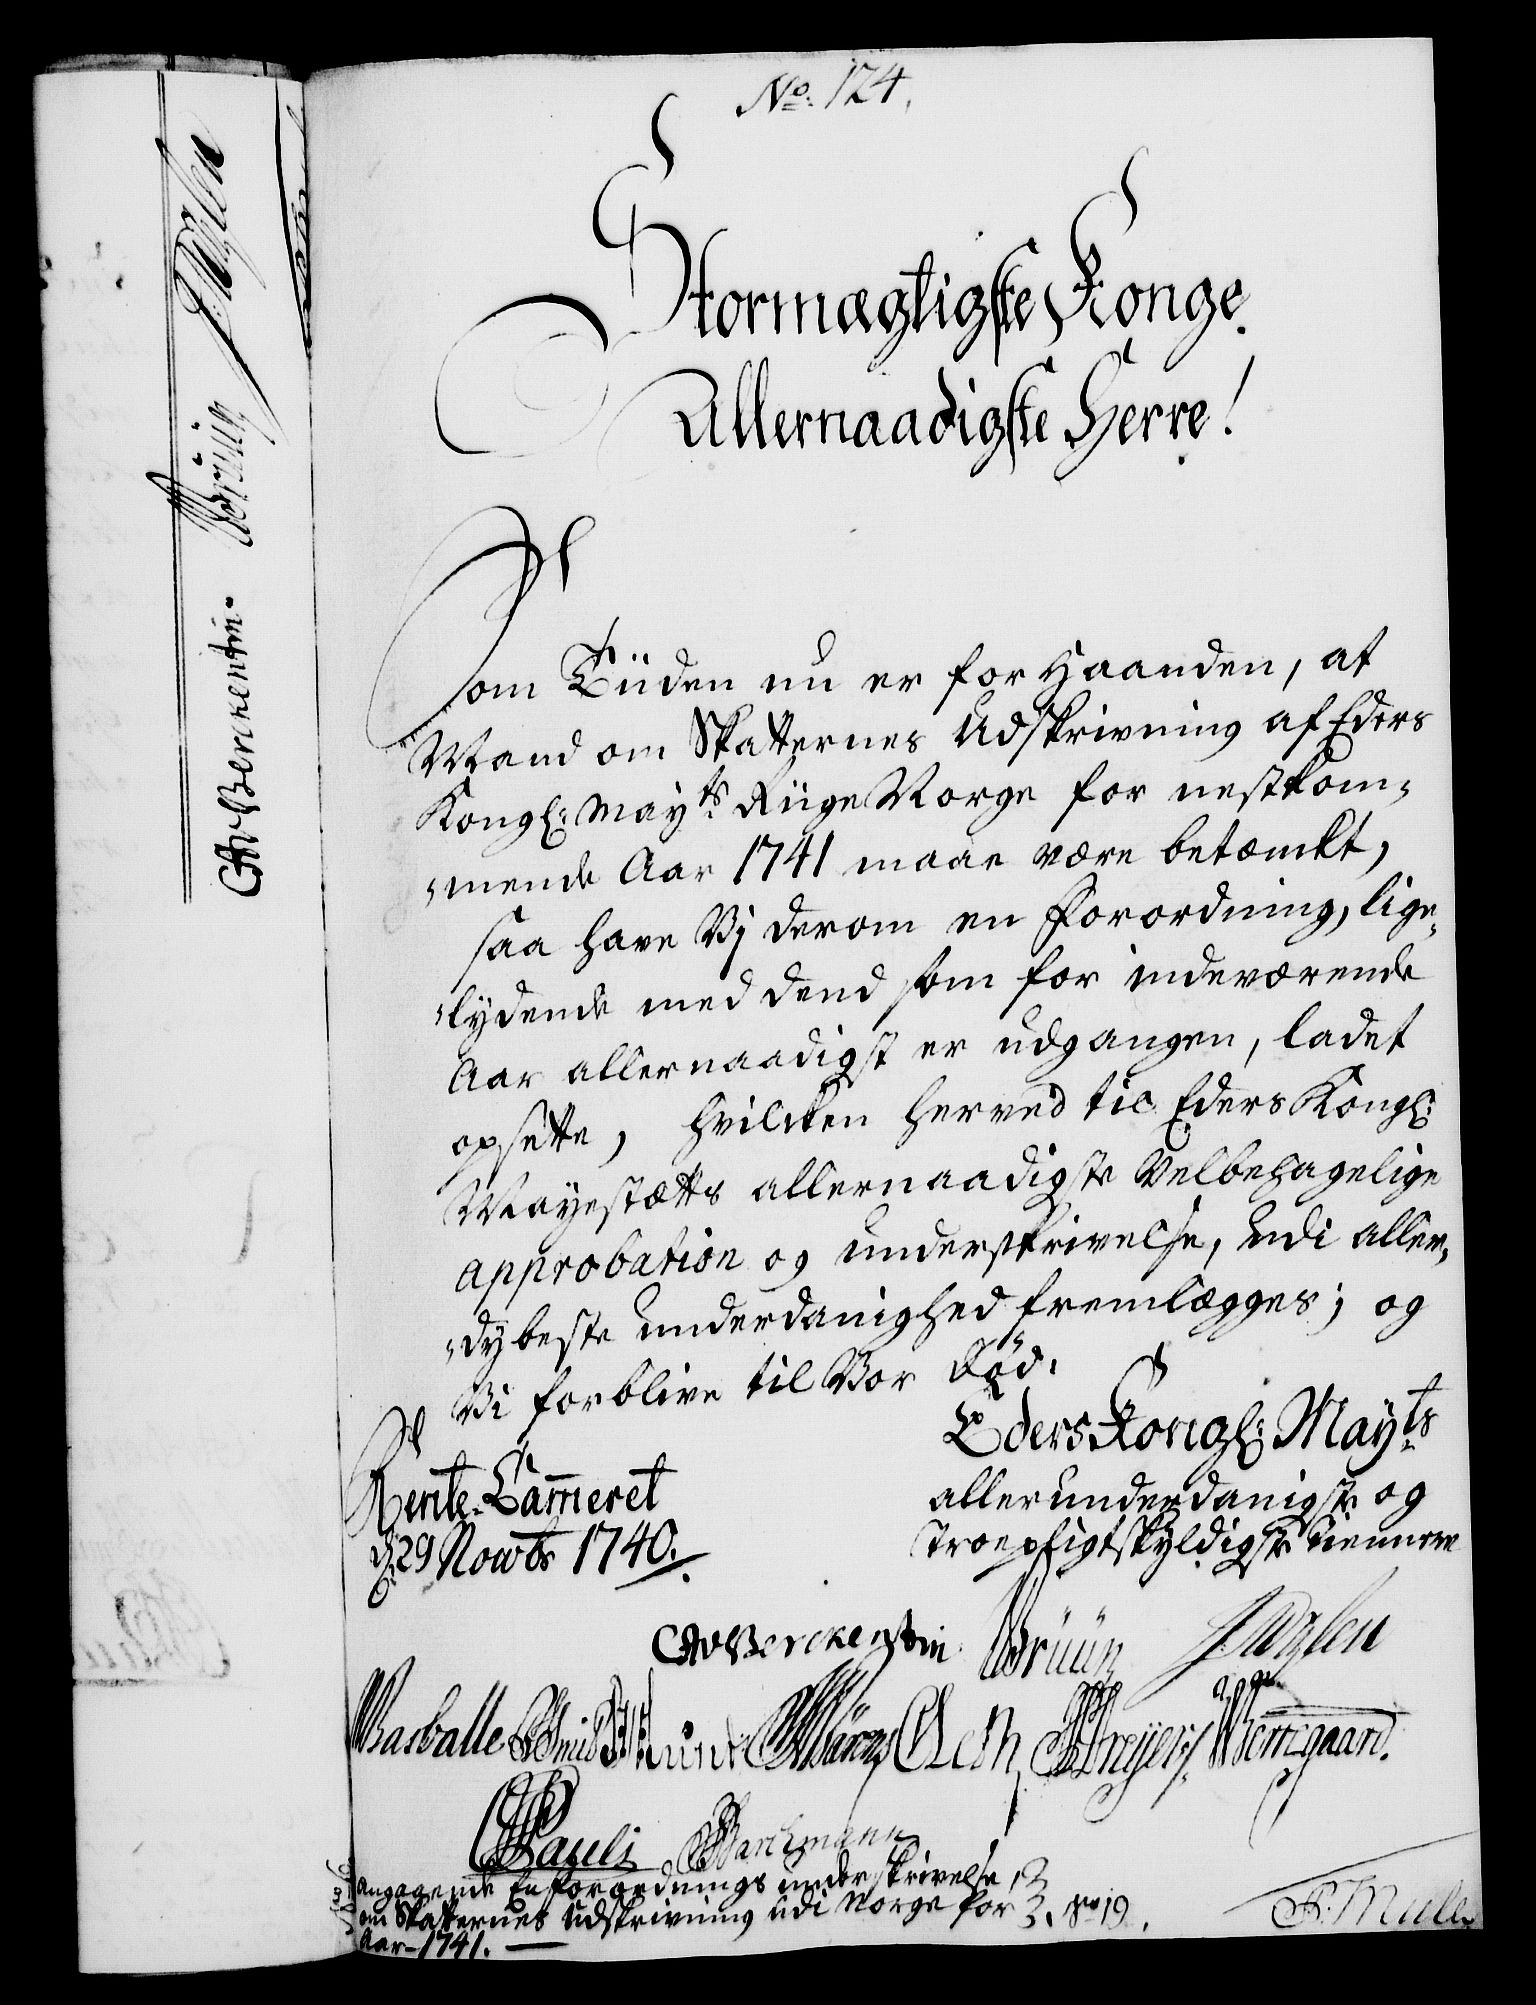 No. 124.
Stormægtigste Konge
Allernaadigste Herre!
Som Tiiden nu er for Haanden, at
Maad om Skatternes Udskrivning af Eders
Kongl: Mayts Riige Norge for nestkom-
-mende Aar 1741 maae være betænckt,
saa have Vj derom en Forordning, lige-
-lydende med dend som for indeværende
Aar allernaadigst er udgangen, ladet
opsette, hvilcken herved til Eders Kongl:
Mayestætts allernaadigste Velbehagelige
approbation og underskrivelse, udi aller-
-dybeste underdanighed fremlægges; og
Vi forblive til Vor Død.
Eders Kongl: Mayts
allerunderdanigste og
troepligtskyldigste tiennere
Rente-Cammeret
d: 29 Novbr 1740.
CAvBerckentin Bruün
Basballe
Bentzon Pauli
Angaaende En Forordnings underskrivelse
om Skatternes Udskrivning udi Norge for
Aar 1741.
No 19.
CAvBerckentin. Bruün